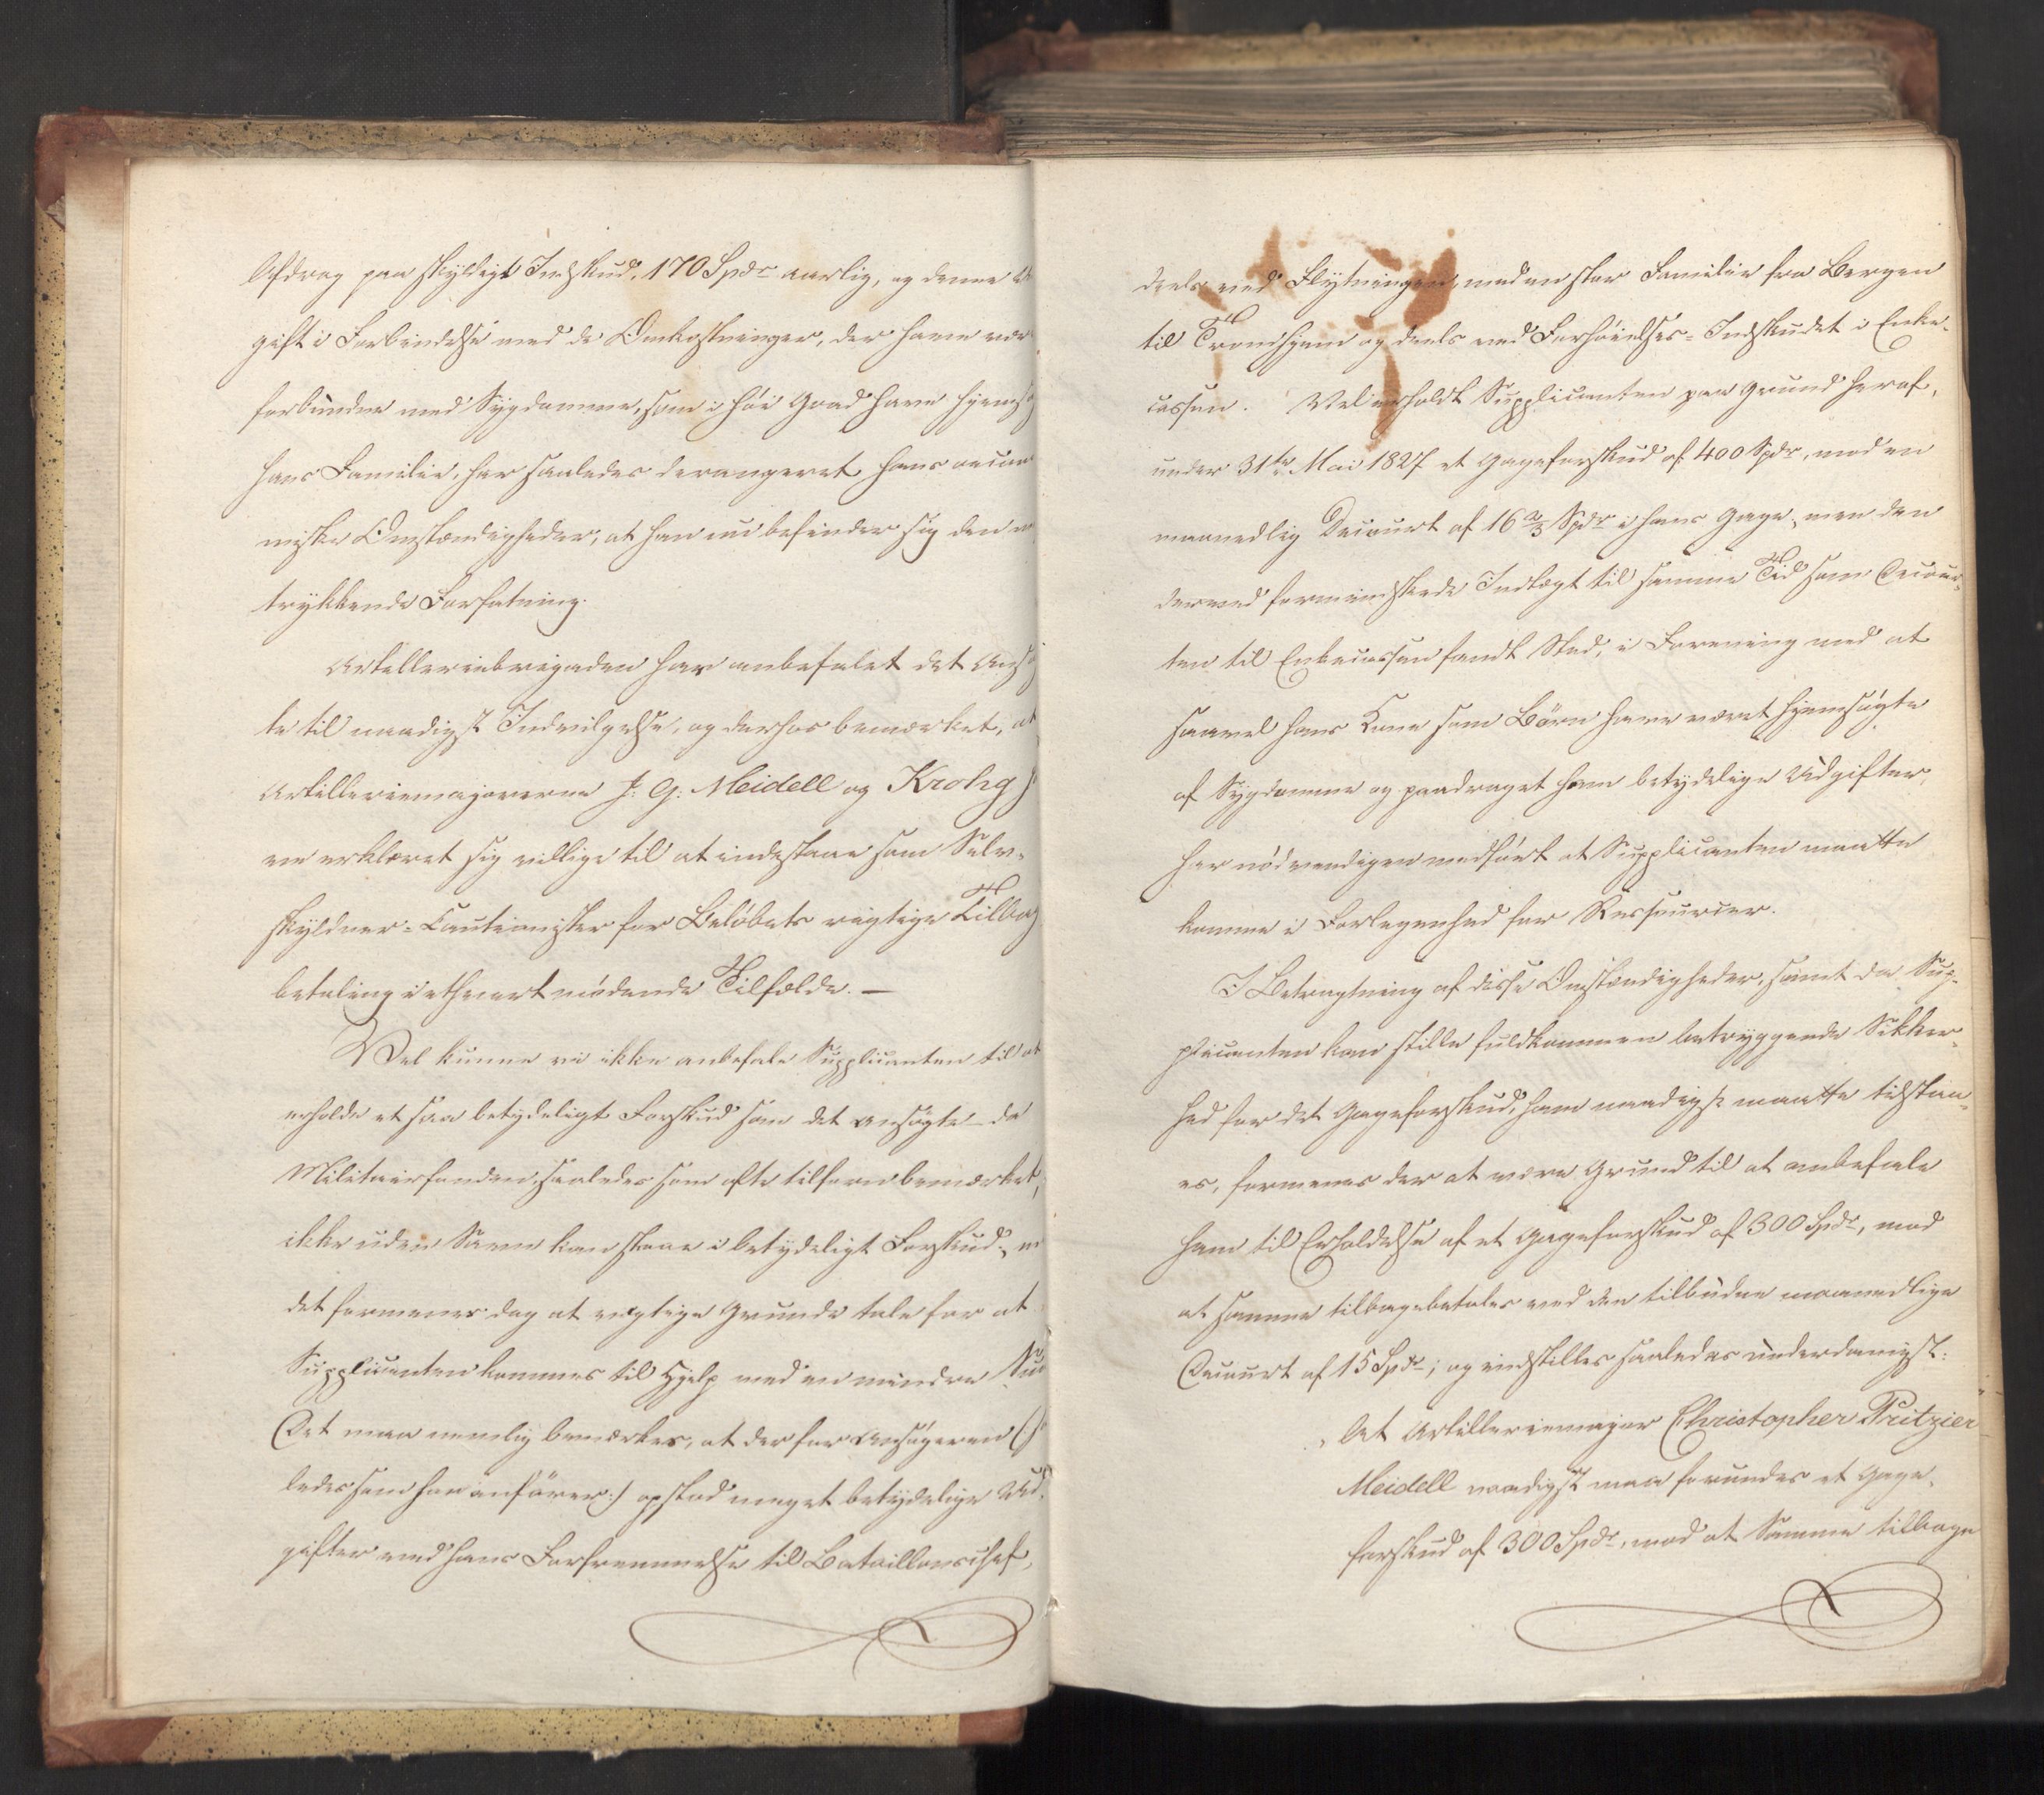 Afdrag paa skyldigt Indskud, 170 Spdr aarlig, og denne Ud
gift i Forbindelse med de Omkostninger, der have vær
forbundne med Sygdomme, som i høi Grad have hjemsø
hans Familie, har saaledes derangeret hans oecono
miske Omstændigheder, at han nu befinder sig den m
trykkende Forfatning.
Artilleriebrigaden har anbefalet det Ansø
te til naadigst Indvilgelse, og derhos bemærket, at
Artilleriemajorerne J. G. Meidell og Krohg ha
ve erklæret sig villige til at indestaae som Selv-
skyldner-Cautionister for Beløbets rigtige Tilbag
betaling i ethvert mødende Tilfælde. —
Vel kunne vi ikke anbefale Supplicanten til at
erholde et saa betydeligt Forskud som det Ansøgte da
Militairfonden, saaledes som ofte tilforn bemærket,
ikke uden Savn kan staae i betydeligt Forskud; m
det formenes dog at vigtige Grunde tale for at
Supplicanten kommes til Hjelp med en mindre Su
Det maa nemlig bemærkes, at der for Ansøgeren (: saa
ledes som han anfører :) opstod meget betydelige Ud-
gifter ved hans Forfremmelse til Bataillonschef,
deels ved Flytningen, med en stor Familie fra Bergen
til Trondhjem og deels ved Forhøielses-Indskudet i Enke-
cassen. Vel erholdt Supplicanten paa Grund heraf,
under 31te Mai 1827 et Gageforskud af 400 Spdr, mod en
maanedlig Decourt af 16 2/3 Spdr i hans Gage, men den
derved formindskede Indtægt til samme Tid som Decour-
ten til Enkecassen fandt Sted, i Forening med at
saavel hans Kone som Børn have været hjemsøgte
af Sygdomme og paadraget ham betydelige Udgifter,
har nødvendigen medført at Supplicanten maatte
komme i Forlegenhed for Ressourcer.
I Betragtning af disse Omstændigheder, samt da Sup-
plicanten kan stille fuldkommen betryggende Sikker-
hed for det Gageforskud, ham naadigst maatte tilstaa-
es, formenes der at være Grund til at anbefale
ham til Erholdelse af et Gageforskud af 300 Spdr, mod
at samme tilbagebetales ved den tilbudne maanedlige
Decourt af 15 Spdr; og indstilles saaledes underdanigst:
At Artilleriemajor Christopher Pritzier
Meidell naadigst maa forundes et Gage-
forskud af 300 Spdr, mod at Samme tilbage